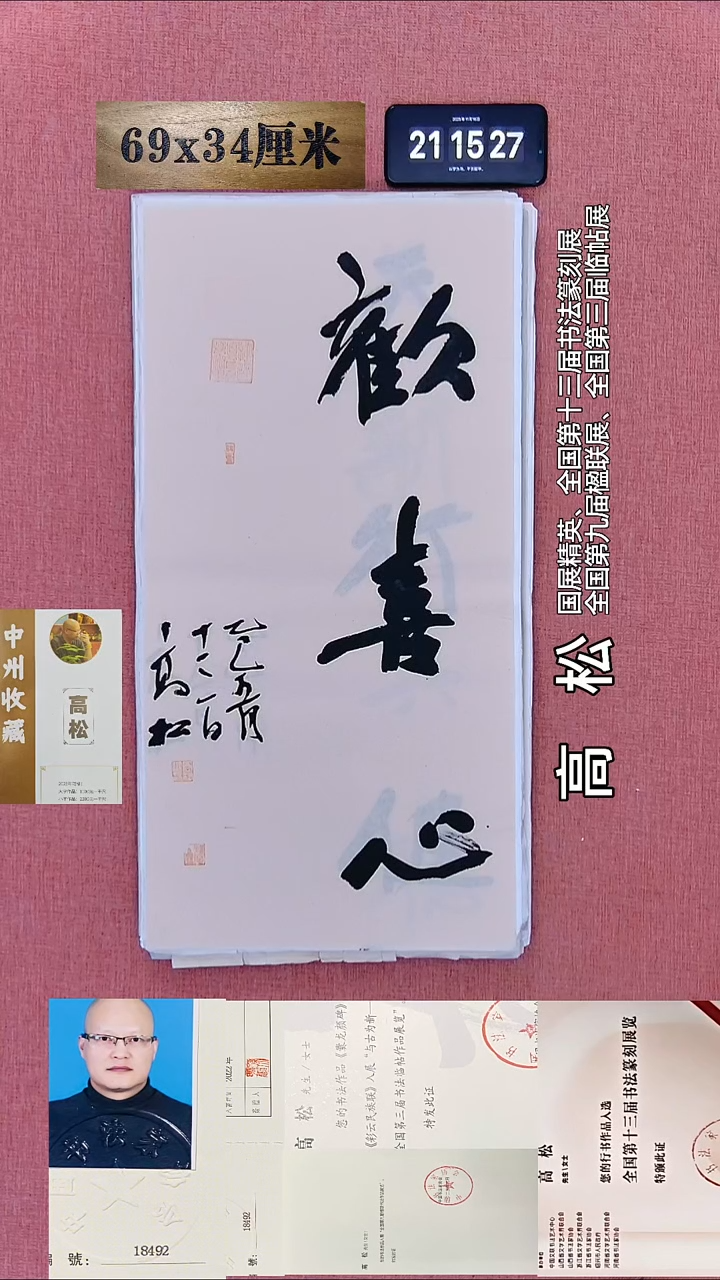 69x34厘米
2025年11月18日
21 15 27
歡
喜
心
乙巳五月
十二日
高松
高 松
国展精英、全国第十三届书法篆刻展
全国第九届楹联展、全国第三届临帖展
中州收藏
高松
號：
18492
2022年
18492
號：
高 松 先生/女士
您的书法作品《爨龙颜碑》
《彩云民族联》入展“与古为新—
全国第三届书法临帖作品展览”
特发此证
高 松
先生\女士
您的行书作品入选
全国第十三届书法篆刻展览
特颁此证